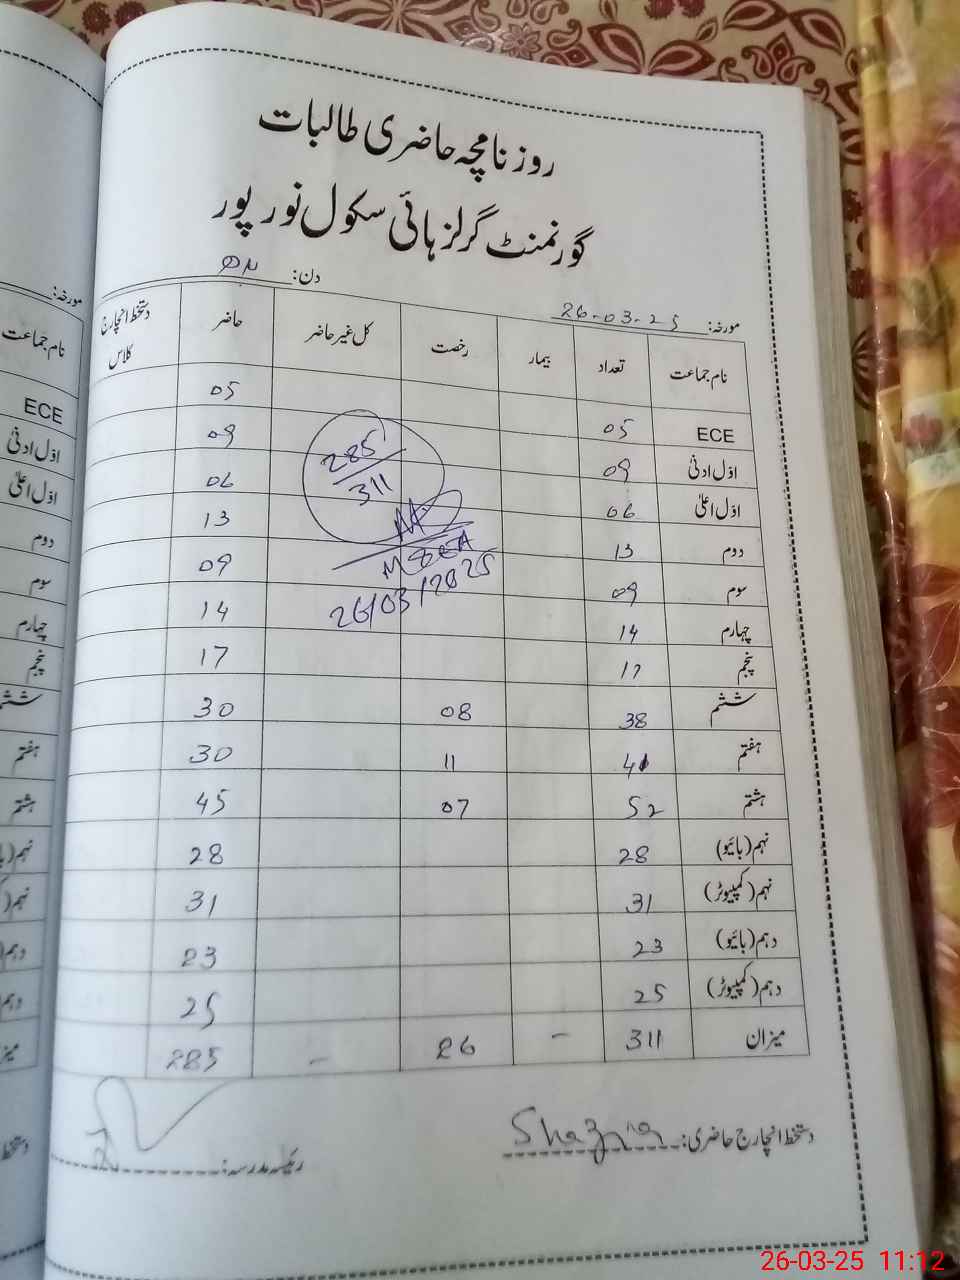 روزنامچہ حاضری طالبات
گورنمنٹ گرلز ہائی سکول نور پور
مورخہ: 26-03-25 دن: بدھ
نام جماعت تعداد بیمار رخصت کل غیر حاضر حاضر دستخط انچارج کلاس
ECE 05 05
اوّل ادنیٰ 09 09
اوّل اعلیٰ 06 06
دوم 13 13
سوم 09 09
چہارم 14 14
پنجم 17 17
ششم 38 08 30
ہفتم 41 11 30
ہشتم 52 07 45
نہم (بائیو) 28 28
نہم (کمپیوٹر) 31 31
دہم (بائیو) 23 23
دہم (کمپیوٹر) 25 25
میزان 311 - 26 - 285
285
311
26/03/2025
دستخط انچارج حاضری: Shazia
رئیسہ مدرسہ:
مورخہ:
نام جماعت
ECE
اوّل ادنیٰ
اوّل اعلیٰ
دوم
سوم
چہارم
پنجم
ہفتم
ہشتم
26-03-25 11:12